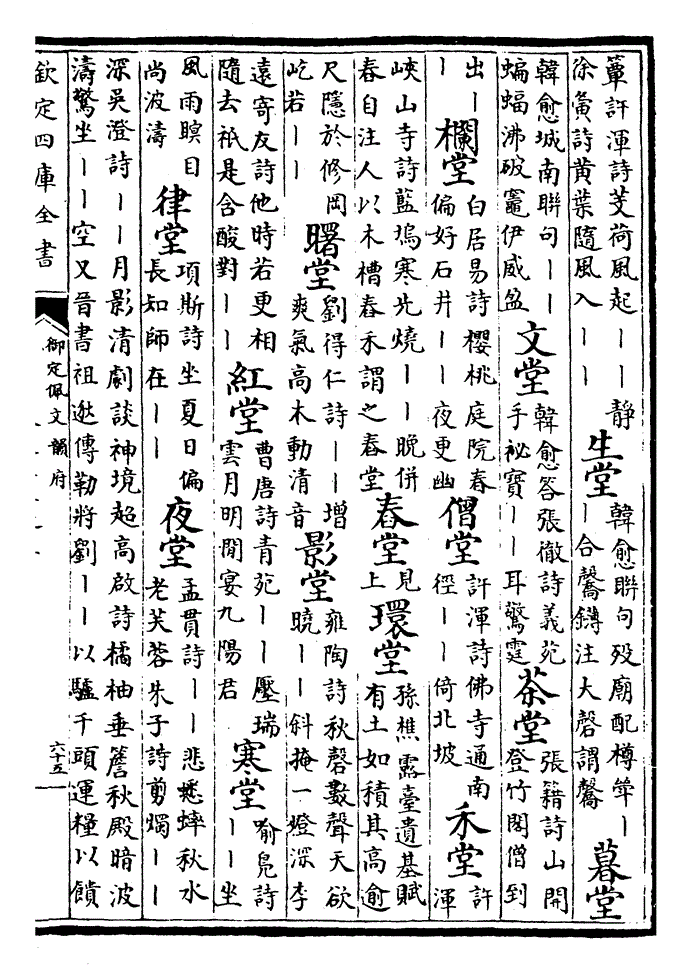 簟許渾詩芰荷風起丨丨靜
徐夤詩黄葉隨風入丨丨
生堂
韓愈聯句殁廟配樽斝丨
丨合馨鏄注大磬謂馨
暮堂
韓愈城南聯句丨丨
蝙蝠沸破竈伊威盈
文堂
韓愈答張徹詩義苑
手秘寶丨丨耳驚霆
茶堂
張籍詩山開
登竹閣僧到
出丨
丨
欄堂
白居易詩櫻桃庭院春
偏好石井丨丨夜更幽
僧堂
許渾詩佛寺通南
徑丨丨倚北坡
禾堂
許
渾
峽山寺詩藍塢寒先燒丨丨晚併
春自注人以木槽舂禾謂之舂堂
舂堂
見
上
環堂
孫樵露臺遺基賦
有土如積其高逾
尺隱於修岡
屹若丨丨
曙堂
劉得仁詩丨丨增
爽氣高木動清音
影堂
雍陶詩秋磬數聲天欲
曉丨丨斜掩一燈深李
遠寄友詩他時若更相
隨去秖是含酸對丨丨
紅堂
曹唐詩青苑丨丨壓瑞
雲月明閒宴九陽君
寒堂
喻鳬詩
丨丨坐
風雨瞑目
尚波濤
律堂
項斯詩坐夏日偏
長知師在丨丨
夜堂
孟貫詩丨丨悲蟋蟀秋水
老芙蓉朱子詩剪燭丨丨
深吳澄詩丨丨月影清劇談神境超高啟詩橘柚垂簷秋殿暗波
濤驚坐丨丨空又晉書祖逖傳勒將劉丨丨以驢千頭運糧以饋
欽定四庫全書
御定佩文韻府
六十五